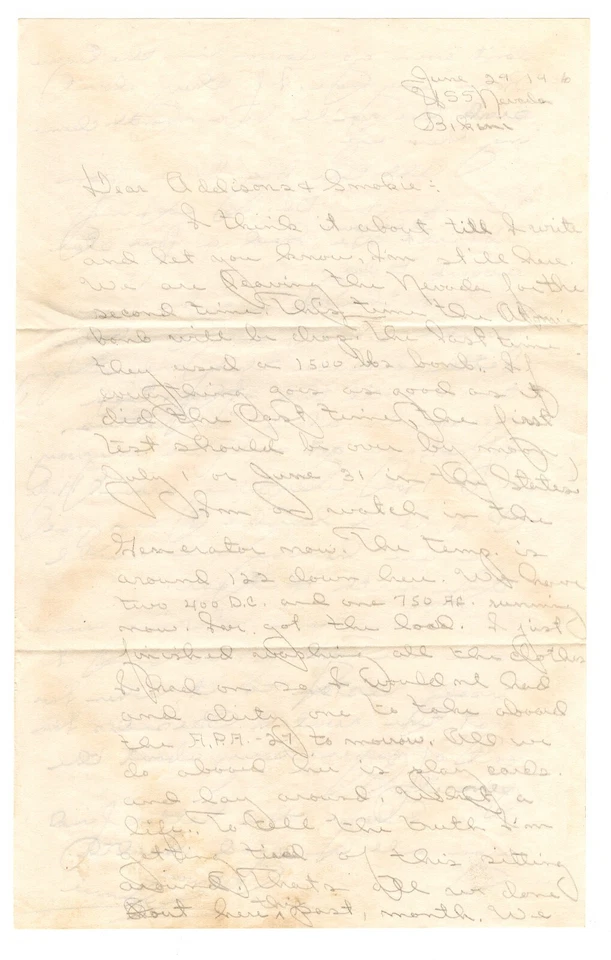 June 29 1946
USS Nevada
Bikini
Dear Addisons & Smokie:
I think it about till I write
and let you know, I'm still here.
We are leaving the Nevada for the
second time. This time the Atomic
bomb will be drop. The last time
they used a 1500 lbs bomb. If
everything goes as good as it
did the last time, the first
test should be over by noon,
July 1 or June 31 in the States.
I'm on watch in the
Generator now. The temp. is
around 122 down here. We have
two 400 D.C. and one 750 running
now. got the load. I just
finished all the clothes
I had on so I wouldn't had
and dirty one to take aboad
the A.P.A.-27 to morrow. All we
do aboad here is play cards.
and lay around. What a
life. To tell the truth I'm
getting tied of this sitting
around. That's all we done
out here this past, month. We